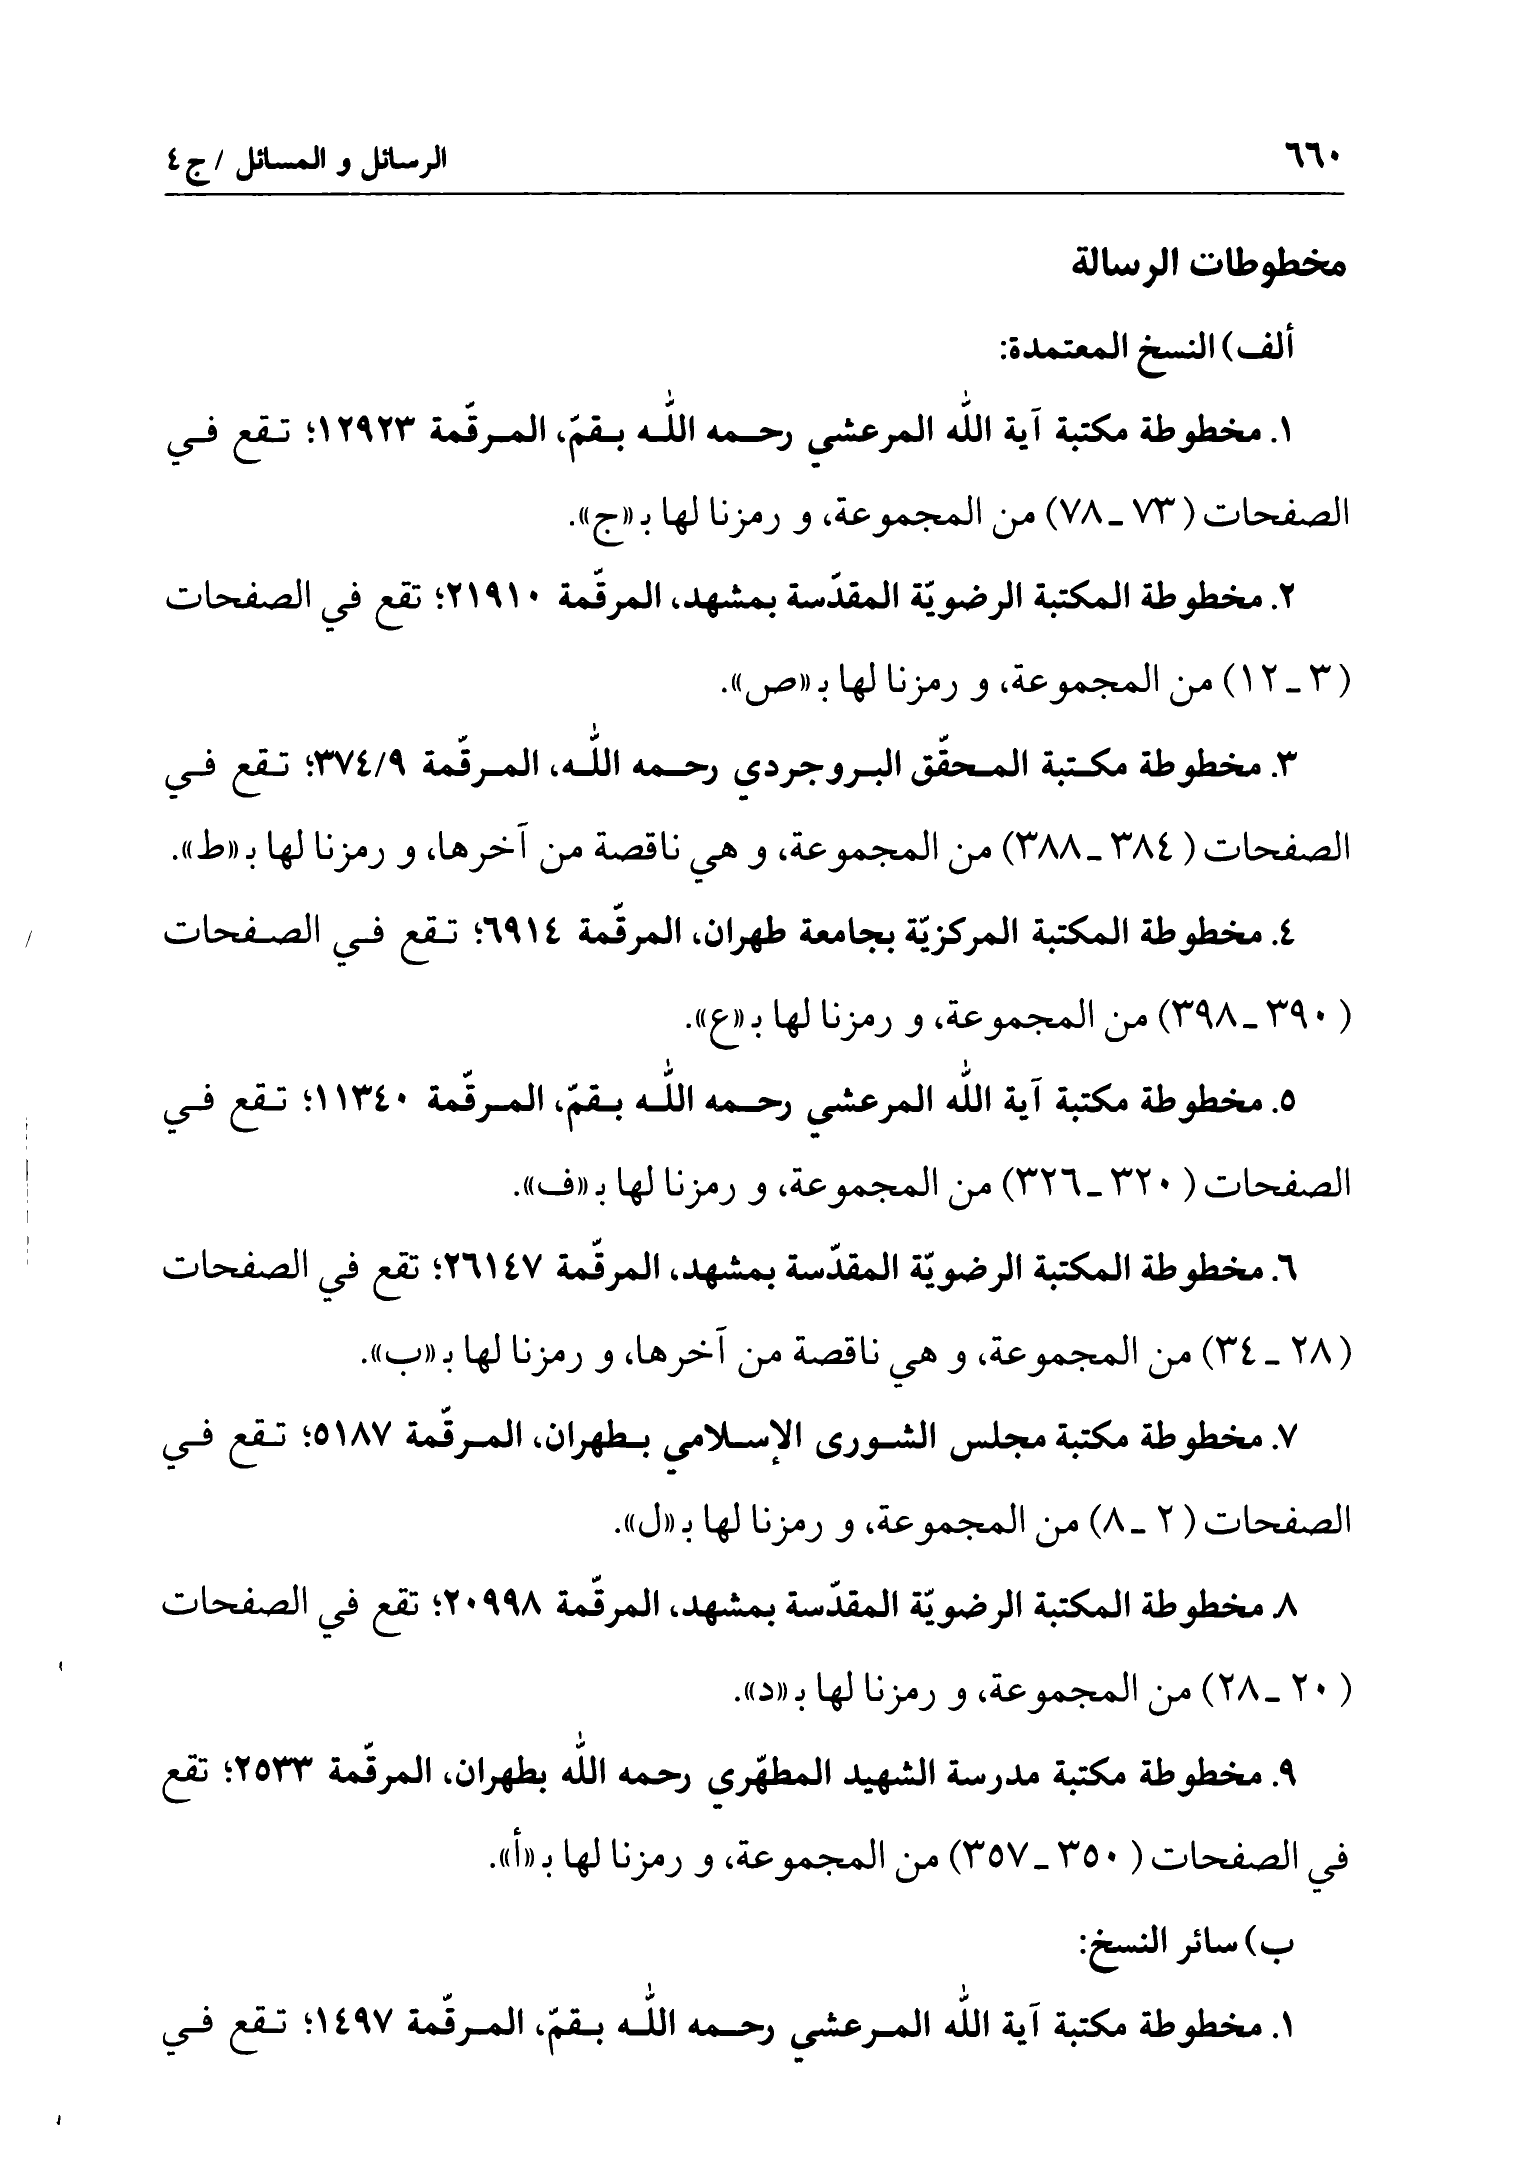 ٦٦٠ الرسائل و المسائل / ج٤
مخطوطات الرسالة
ألف) النسخ المعتمدة:
١. مخطوطة مكتبة آية اللّٰه المرعشي رحمه اللّٰه بقمّ، المرقّمة ١٢٩٢٣؛ تقع في
الصفحات (٧٣ ـ ٧٨) من المجموعة، و رمزنا لها بـ «ج».
٢. مخطوطة المكتبة الرضويّة المقدّسة بمشهد، المرقّمة ٢١٩١٠؛ تقع في الصفحات
(٣ ـ ١٢) من المجموعة، و رمزنا لها بـ «ص».
٣. مخطوطة مكتبة المحقّق البروجردي رحمه اللّٰه، المرقّمة ٣٧٤/٩؛ تقع في
الصفحات (٣٨٤ ـ ٣٨٨) من المجموعة، و هي ناقصة من آخرها، و رمزنا لها بـ «ط».
٤. مخطوطة المكتبة المركزيّة بجامعة طهران، المرقّمة ٦٩١٤؛ تقع في الصفحات
(٣٩٠ ـ ٣٩٨) من المجموعة، و رمزنا لها بـ «ع».
٥. مخطوطة مكتبة آية اللّٰه المرعشي رحمه اللّٰه بقمّ، المرقّمة ١١٣٤٠؛ تقع في
الصفحات (٣٢٠ ـ ٣٢٦) من المجموعة، و رمزنا لها بـ «ف».
٦. مخطوطة المكتبة الرضويّة المقدّسة بمشهد، المرقّمة ٢٦١٤٧؛ تقع في الصفحات
(٢٨ ـ ٣٤) من المجموعة، و هي ناقصة من آخرها، و رمزنا لها بـ «ب».
٧. مخطوطة مكتبة مجلس الشورى الإسلامي بطهران، المرقّمة ٥١٨٧؛ تقع في
الصفحات (٢ ـ ٨) من المجموعة، و رمزنا لها بـ «ل».
٨. مخطوطة المكتبة الرضويّة المقدّسة بمشهد، المرقّمة ٢٠٩٩٨؛ تقع في الصفحات
(٢٠ ـ ٢٨) من المجموعة، و رمزنا لها بـ «د».
٩. مخطوطة مكتبة مدرسة الشهيد المطهّري رحمه اللّٰه بطهران، المرقّمة ٢٥٣٣؛ تقع
في الصفحات (٣٥٠ ـ ٣٥٧) من المجموعة، و رمزنا لها بـ «أ».
ب) سائر النسخ:
١. مخطوطة مكتبة آية اللّٰه المرعشي رحمه اللّٰه بقمّ، المرقّمة ١٤٩٧؛ تقع في